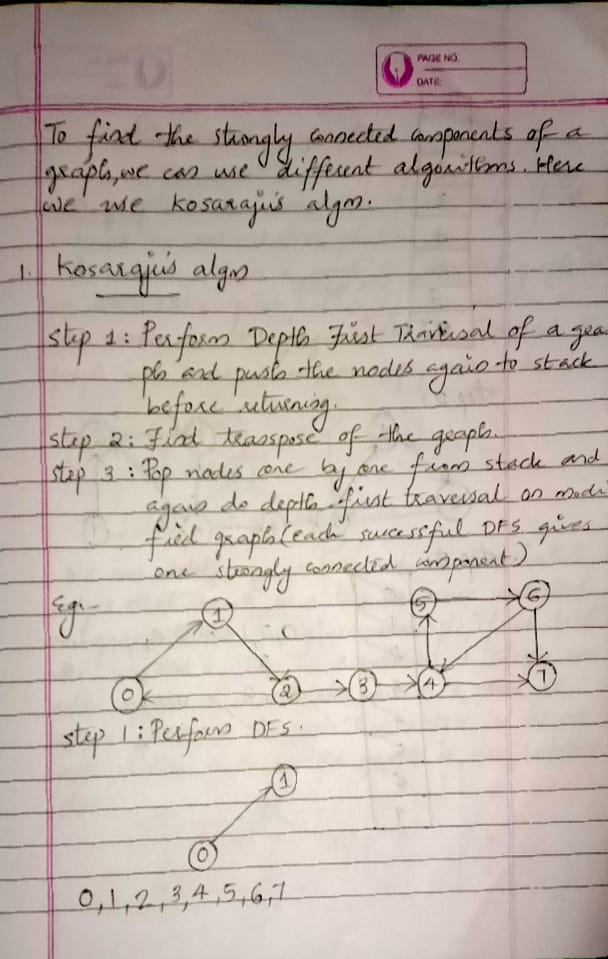 PAGE NO.
DATE:
To find the strongly connected components of a
graph, we can use different algorithms. Here
we use Kosaraju's algm.
1. Kosaraju's algm
step 1: Perform Depth First Traversal of a gra
ph and push the nodes again to stack
before returning.
step 2: Find transpose of the graph.
step 3: Pop nodes one by one from stack and
again do depth first traversal on modi
fied graph (each successful DFS gives
one strongly connected component)
Eg:-
1 5 6
0 2 3 4 7
step 1: Perform DFS.
1
0
0,1,2,3,4,5,6,7